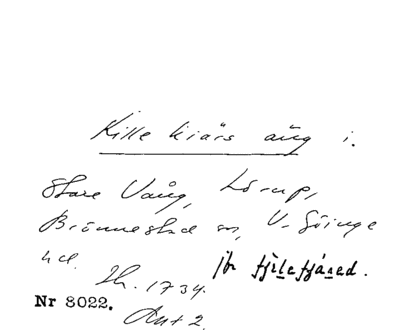 Kille kiärs äng i.
Stare Vång, Lörup,
Brönnestad sn, V. Göinge
hd. Lh. 1734. jfr
Nr 8022. Akt 2.